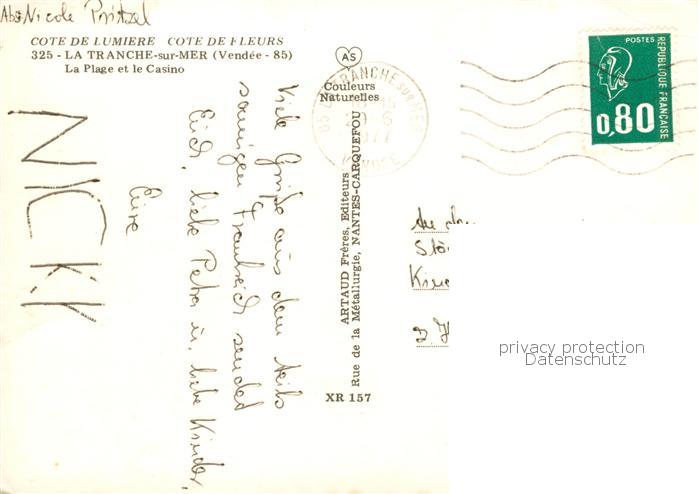 Abs. Nicole Pritzel
COTE DE LUMIERE COTE DE FLEURS
325 - LA TRANCHE-sur-MER (Vendée - 85)
La Plage et le Casino
AS
Couleurs
Naturelles
85 LA TRANCHE SUR MER
20 6
1977
VENDEE
POSTES
REPUBLIQUE FRANÇAISE
0,80
Viele Grüße aus dem teils
sonnigen Frankreich sendet
Euch, liebe Petra u. liebe Kinder,
Eure
NICKY
ARTAUD Frères, Editeurs
Rue de la Métallurgie, NANTES-CARQUEFOU
XR 157
An
Kind
privacy protection
Datenschutz